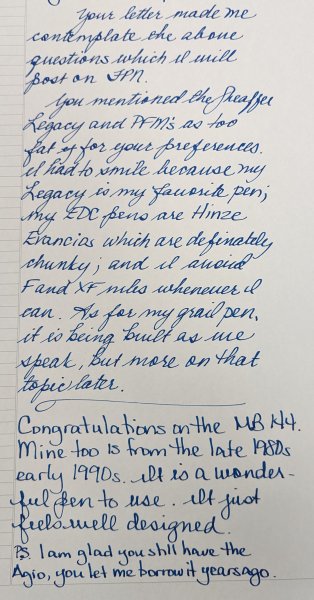 Your letter made me
contemplate the above
questions which I will
post on FPN.
You mentioned the Sheaffer
Legacy and PFM's as too
fat for your preferences.
I had to smile because my
Legacy is my favorite pen;
my EDC pens are Hinze
Evancios which are definately
chunky; and I avoid
F and XF nibs whenever I
can. As for my grail pen,
it is being built as we
speak, but more on that
topic later.
Congratulations on the MB 144.
Mine too is from the late 1980s
early 1990s. It is a wonder-
ful pen to use. It just
feels well designed.
PS I am glad you still have the
Agio, you let me borrow it years ago.